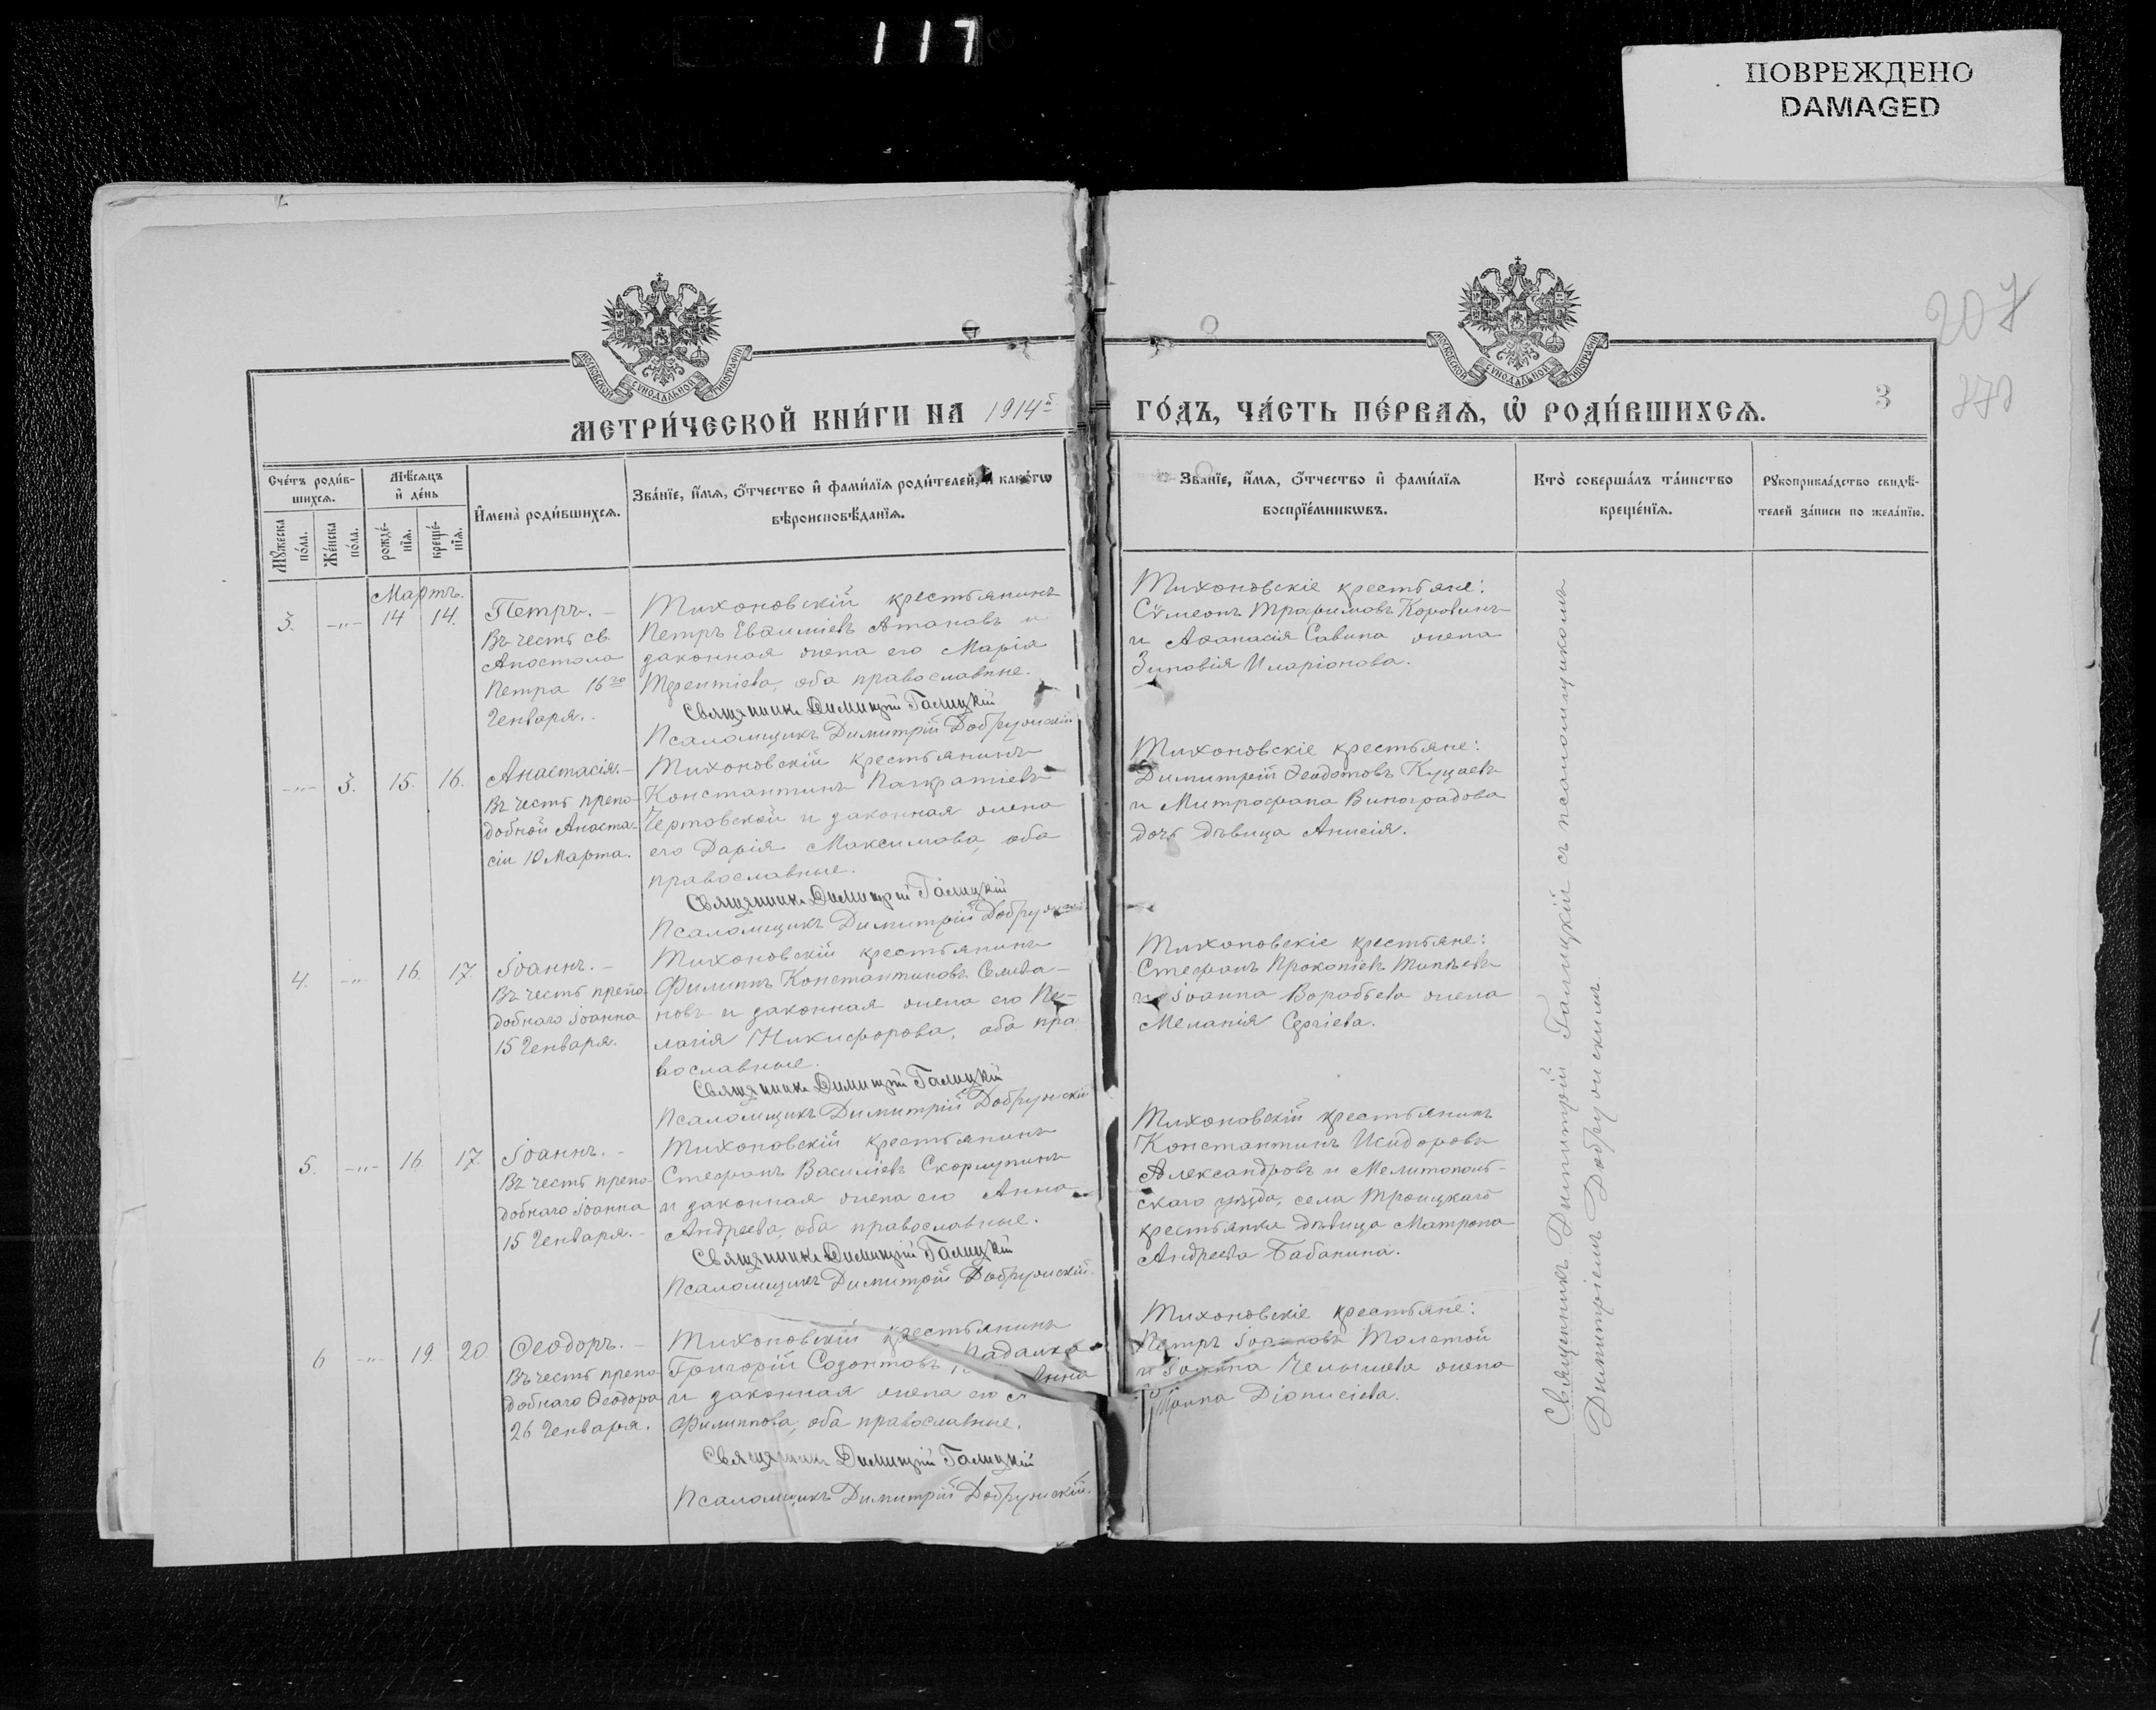 117
ПОВРЕЖДЕНО
DAMAGED
207
МОСКОВСКОЙ СУНОДАЛЬНОЙ ТИПОГРАФІИ
МОСКОВСКОЙ СУНОДАЛЬНОЙ ТИПОГРАФІИ
МЕТРИ́ЧЕСКОЙ КНИ́ГИ НА 1914й
ГО́ДЪ, ЧА́СТЬ ПЕ́РВАѦ, Ѡ҆ РОДИ́ВШИХСѦ.
3
Сче́тъ роди́в-
шихсѧ.
Мꙋ́жеска
по́ла.
Же́нска
по́ла.
Мѣ́сѧцъ
и҆ де́нь
рожде́-
нїѧ.
креще́-
нїѧ.
И҆мена̀ роди́вшихсѧ.
Зва́нїе, и҆́мѧ, ѻ҆́тчество и҆ фами́лїѧ роди́телей, и҆ како́гѡ
вѣроисповѣ́данїѧ.
Зва́нїе, и҆́мѧ, ѻ҆́тчество и҆ фами́лїѧ
воспрїе́мникѡвъ.
Кто̀ соверша́лъ та́инство
креще́нїѧ.
Рꙋкоприкла́дство свидѣ́-
телей за́писи по жела́нїю.
Мартъ.
3. -"- 14 14.
Петръ. -
Въ честь св.
Апостола
Петра 16го
Генваря.
Тихоновскій крестьянинъ
Петръ Евѳиміевъ Атановъ и
законная жена его Марія
Терентіева, оба православные.
Священникъ Димитрій Галицкій
Псаломщикъ Димитрій Добружскій
Тихоновскіе крестьяне:
Сѵмеонъ Трофимовъ Коровинъ
и Аѳанасія Савина жена
Зиновія Иларіонова.
-"- 3. 15. 16.
Анастасія. -
Въ честь препо-
добной Анаста-
сіи 10 Марта.
Тихоновскій крестьянинъ
Константинъ Панкратіевъ
Чертовской и законная жена
его Дарія Максимова, оба
православные.
Священникъ Димитрій Галицкій
Псаломщикъ Димитрій Добружскій
Тихоновскіе крестьяне:
Димитрій Ѳеодотовъ Куцаевъ
и Митрофана Виноградова
дочь дѣвица Анисія.
4. -"- 16. 17.
Іоаннъ. -
Въ честь препо-
добнаго Іоанна
15 Генваря.
Тихоновскій крестьянинъ
Филиппъ Константиновъ Селива-
новъ и законная жена его Пе-
лагія Никифорова, оба пра
вославные.
Священникъ Димитрій Галицкій
Псаломщикъ Димитрій Добружскій
Тихоновскіе крестьяне:
Стефанъ Прокопіевъ
и Іоанна Воробьева жена
Меланія Сергіева.
5. -"- 16. 17.
Іоаннъ. -
Въ честь препо-
добнаго Іоанна
15 Генваря. -
Тихоновскій крестьянинъ
Стефанъ Василіевъ Скорлупинъ
и законная жена его Анна
Андреева, оба православные.
Священникъ Димитрій Галицкій
Псаломщикъ Димитрій Добружскій.
Тихоновскій крестьянинъ
Константинъ Исидоровъ
Александровъ и Мелитополь-
скаго уѣзда, села Троицкаго
крестьянка дѣвица Матрона
Андреева Бабанина.
6 -"- 19. 20.
Ѳеодоръ. -
Въ честь препо-
добнаго Ѳеодора
26 Генваря.
Тихоновскій крестьянинъ
Григорій Созонтовъ Падалка
и законная жена его Анна
Филиппова, оба православные.
Священникъ Димитрій Галицкій
Псаломщикъ Димитрій Добружскій.
Тихоновскіе крестьяне:
Петръ Іоанновъ Толстой
и Іоанна жена
Діонисіева.
Священникъ Димитрій Галицкій съ псаломщикомъ
Димитріемъ Добружскимъ.